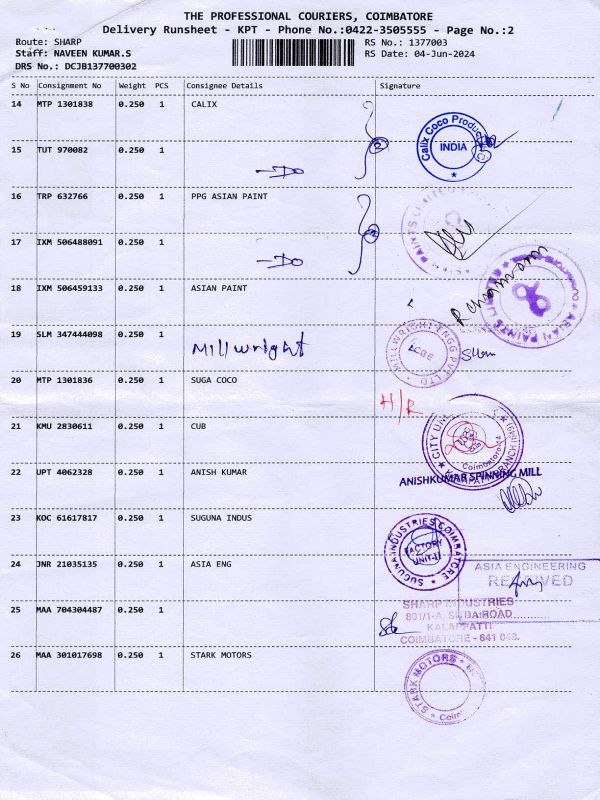 THE PROFESSIONAL COURIERS, COIMBATORE
Delivery Runsheet - KPT - Phone No.:0422-3505555 - Page No.:2
Route: SHARP RS No.: 1377003
Staff: NAVEEN KUMAR.S RS Date: 04-Jun-2024
DRS No.: DCJB137700302
S No Consignment No Weight PCS Consignee Details Signature
14 MTP 1301838 0.250 1 CALIX
Calix Coco Produc
INDIA
15 TUT 970082 0.250 1
-Do
16 TRP 632766 0.250 1 PPG ASIAN PAINT
17 IXM 506488091 0.250 1
-Do
18 IXM 506459133 0.250 1 ASIAN PAINT
ASIAN PAINTS LIMITED
19 SLM 347444098 0.250 1 Millwright
MILLWRIGHT ENGG PVT LTD
CBE
20 MTP 1301836 0.250 1 SUGA COCO
H/R
21 KMU 2830611 0.250 1 CUB
CITY UN
Coimbatore
22 UPT 4062328 0.250 1 ANISH KUMAR
ANISHKUMAR SPINNING MILL
23 KOC 61617817 0.250 1 SUGUNA INDUS
SUGUNA INDUSTRIES COIMBATORE
FACTORY
UNIT-II
24 JNR 21035135 0.250 1 ASIA ENG
ASIA ENGINEERING
RECEIVED
25 MAA 704304487 0.250 1
SHARP INDUSTRIES
801/1-A, SITRA ROAD
KALAPPATTI
COIMBATORE - 641 048.
26 MAA 301017698 0.250 1 STARK MOTORS
STARK MOTORS
Coim